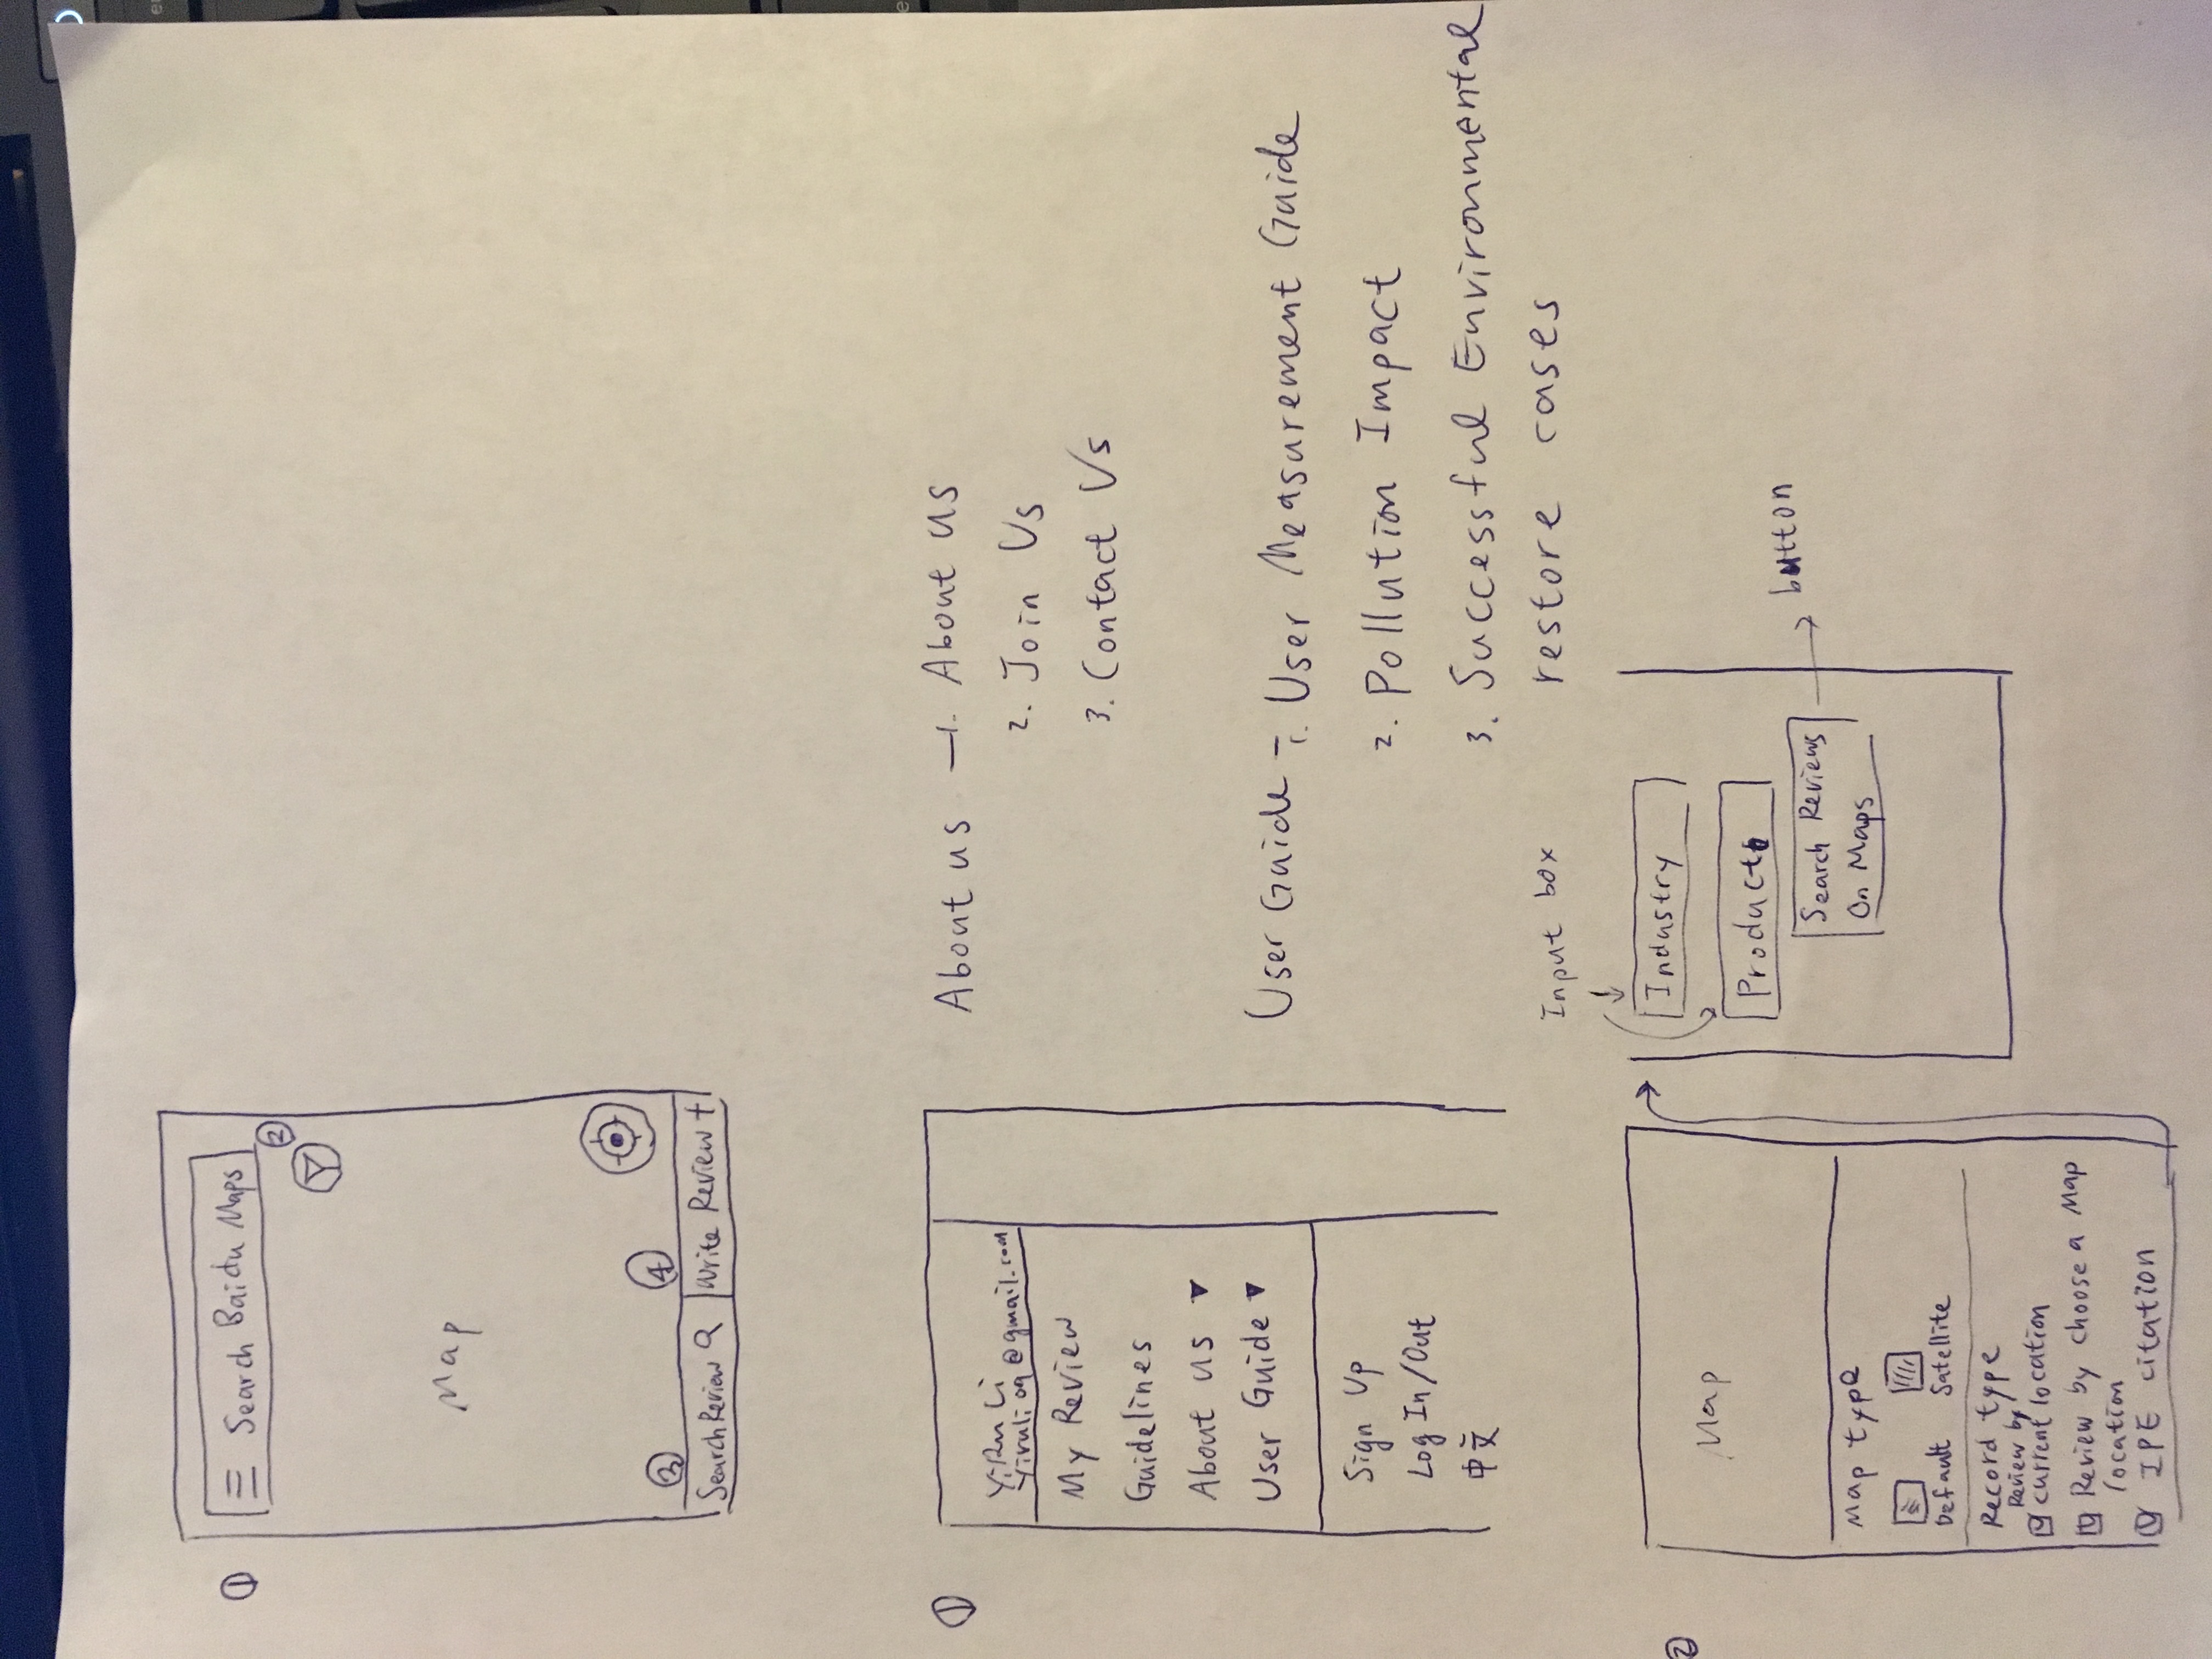 ①
☰ Search Baidu Maps
②
Map
③
④
Search Review
Write Review +
①
YiRu Li
@gmail.com
My Review
Guidelines
About us ▼
User Guide ▼
Sign Up
Log In/Out
中文
About us — 1. About us
2. Join Us
3. Contact Us
User Guide - 1. User Measurement Guide
2. Pollution Impact
3. Successful Environmental
restore cases
②
Map
Map type
Default
Satellite
Record type
Review by
current location
Review by choose a Map
location
IPE citation
Input box
Industry
Product
Search Reviews
On Maps
button